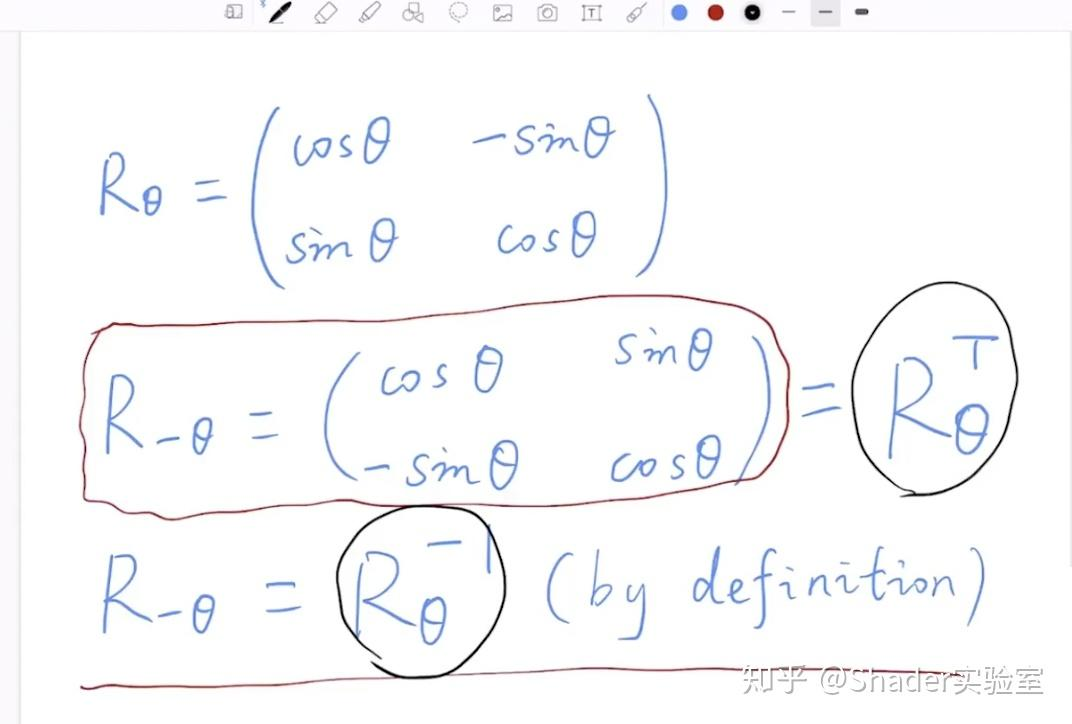 R_θ = ( cosθ  -sinθ
sinθ  cosθ )
R_{-θ} = ( cosθ  sinθ
-sinθ  cosθ ) = R_θ^T
R_{-θ} = R_θ^{-1} (by definition)
知乎 @Shader实验室